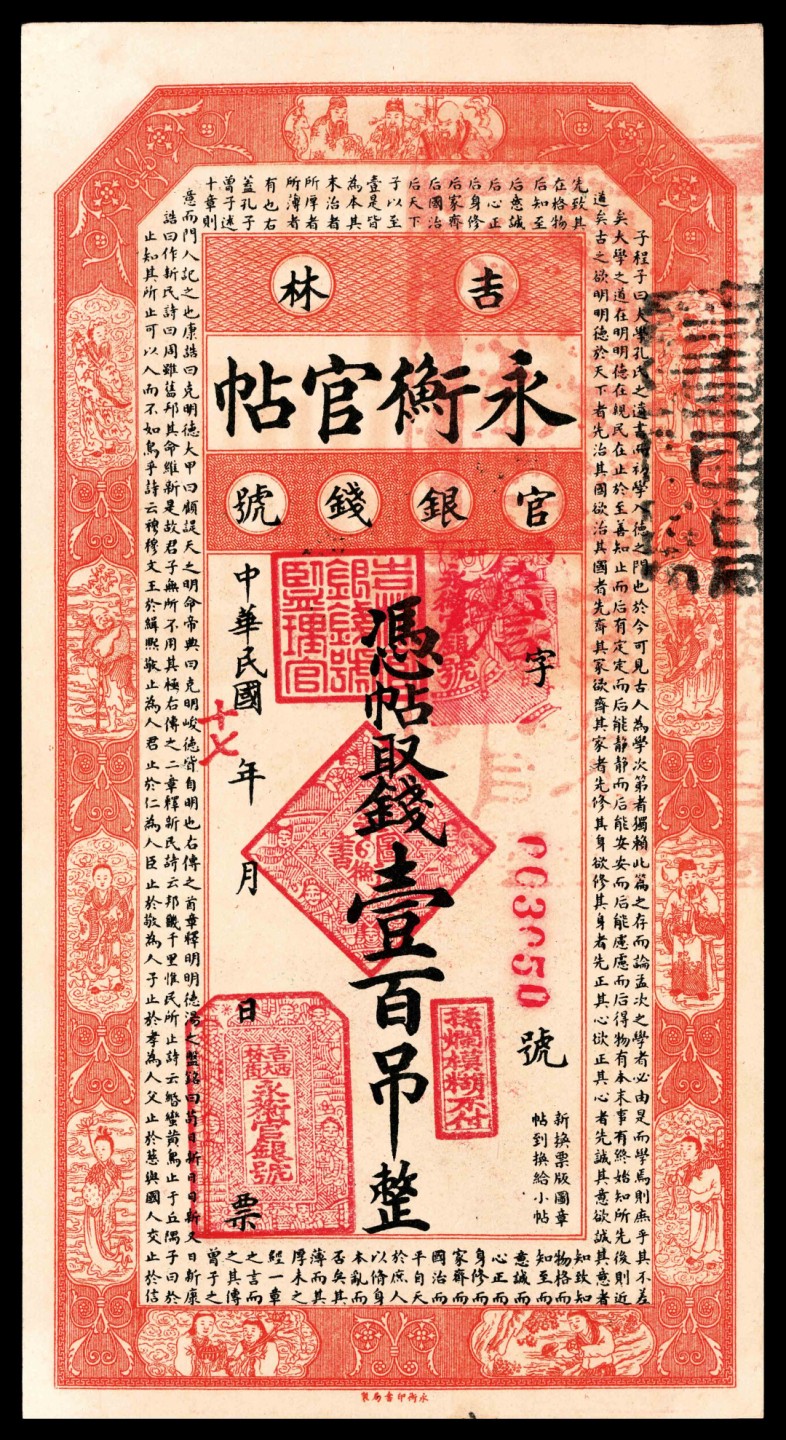 吉林
永衡官帖
官銀錢號
字
003050
號
憑帖取錢壹百吊整
中華民國十七年月日票
新換票版圖章
帖到換給小帖
吉林永衡官銀錢號監理官
吉林西大街
永衡官銀號
擦爛模糊不付
子程子曰大學孔氏之遺書而初學入德之門也於今可見古人為學次第者獨賴此篇之存而論孟次之學者必由是而學焉則庶乎其不差
矣大學之道在明明德在親民在止於至善知止而后有定定而后能靜靜而后能安安而后能慮慮而后得物有本末事有終始知所先後則近
道矣古之欲明明德於天下者先治其國欲治其國者先齊其家欲齊其家者先修其身欲修其身者先正其心欲正其心者先誠其意欲誠其意者
先致其
知致知
在格物
物格而
后知至
知至而
后意誠
意誠而
后心正
心正而
后身修
身修而
后家齊
家齊而
后國治
國治而
后天下
平自天
子以至
於庶人
壹是皆
以脩身
為本其
本亂而
末治者
否矣其
所厚者
薄而其
所薄者
厚未之
有也右
經一章
蓋孔子
之言而
曾子述
之其傳
十章則
曾子之
意而門人記之也康誥曰克明德大甲曰顧諟天之明命帝典曰克明峻德皆自明也右傳之首章釋明明德湯之盤銘曰苟日新日日新又日新康
誥曰作新民詩曰周雖舊邦其命維新是故君子無所不用其極右傳之二章釋新民詩云邦畿千里惟民所止詩云緡蠻黃鳥止于丘隅子曰於
止知其所止可以人而不如鳥乎詩云穆穆文王於緝熙敬止為人君止於仁為人臣止於敬為人子止於孝為人父止於慈與國人交止於信
永衡印書局製